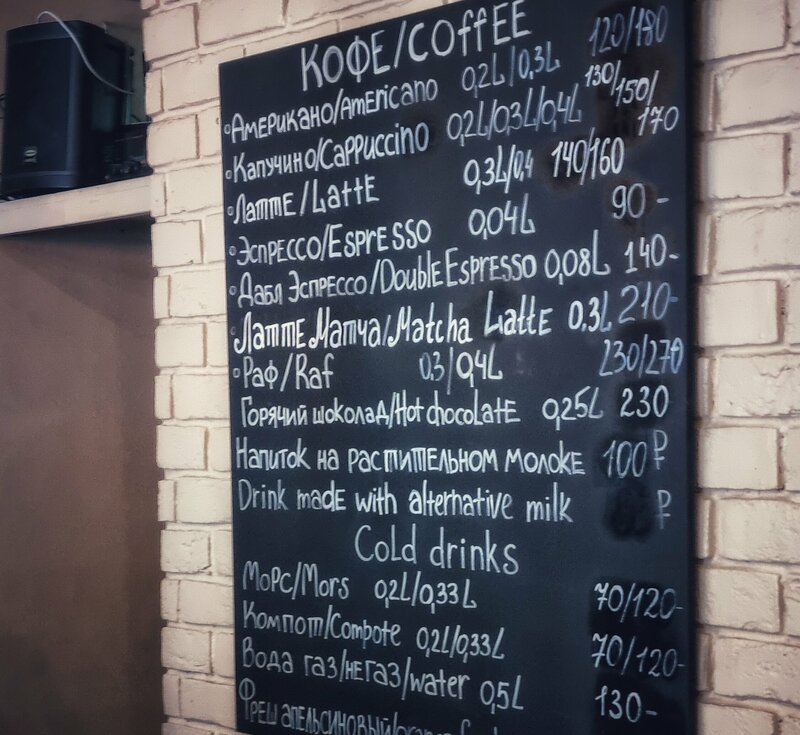 КОФЕ/COFFEE
Американо/Americano 0,2L/0,3L 120/180
Капучино/Cappuccino 0,2L/0,3L/0,4L 130/150/170
Латте/Latte 0,3L/0,4 140/160
Эспрессо/Espresso 0,04L 90-
Дабл Эспрессо/Double Espresso 0,08L 140-
Латте Матча/Matcha Latte 0,3L 210-
Раф/Raf 0,3/0,4L 230/270
Горячий шоколад/Hot chocolate 0,25L 230
Напиток на растительном молоке 100₽
Drink made with alternative milk ₽
Cold drinks
Морс/Mors 0,2L/0,33L 70/120-
Компот/Compote 0,2L/0,33L 70/120-
Вода газ/негаз/water 0,5L 130-
Фреш апельсиновый/